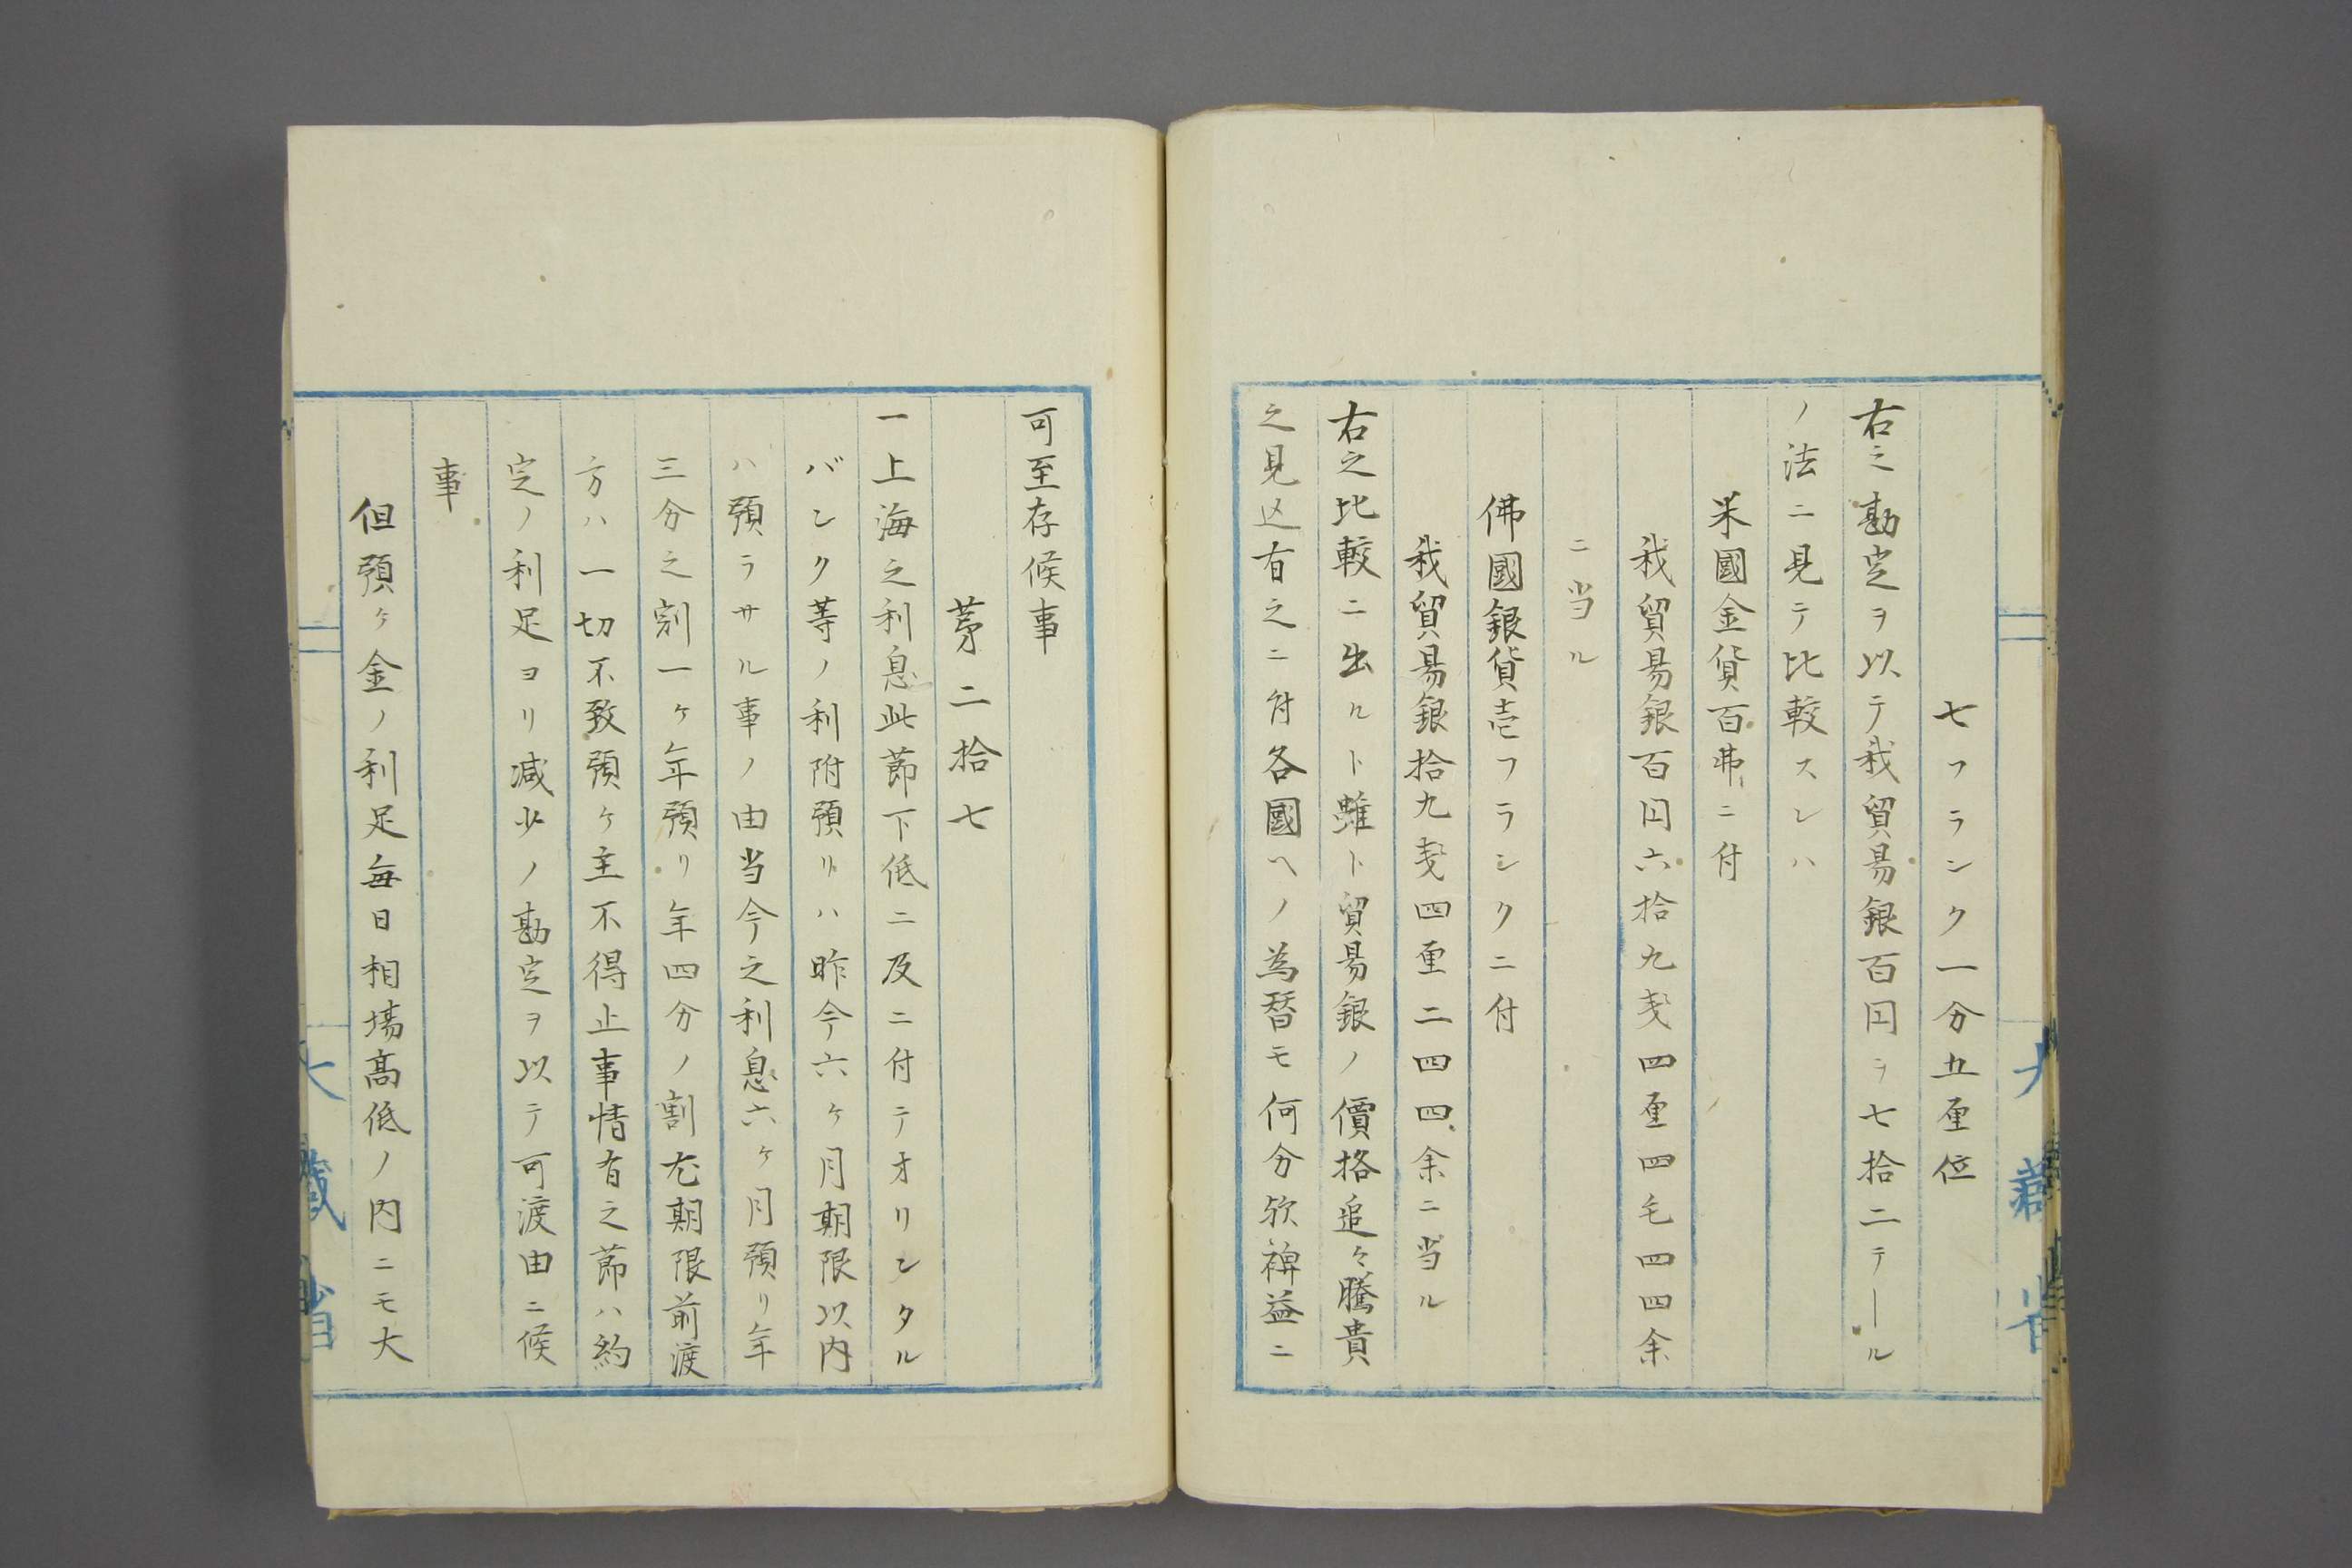 七フランク一分五厘位
右之勘定ヲ以テ我貿易銀百円ヲ七拾二テール
ノ法ニ見テ比較スレハ
米國金貨百弗ニ付
我貿易銀百円六拾九銭四厘四毛四四余
ニ当ル
佛國銀貨壱フランクニ付
我貿易銀拾九銭四厘二四四余ニ当ル
右之比較ニ出ルト雖ト貿易銀ノ價格追々騰貴
之見込有之ニ付各國ヘノ為替モ何分欤裨益ニ
可至存候事
第二拾七
一上海之利息此節下低ニ及ニ付テオリンタル
バンク等ノ利附預リハ昨今六ケ月期限以内
ハ預ラサル事ノ由当今之利息六ケ月預リ年
三分之割一ケ年預リ年四分ノ割尤期限前渡
方ハ一切不致預ケ主不得止事情有之節ハ約
定ノ利足ヨリ減少ノ勘定ヲ以テ可渡由ニ候
事
但預ケ金ノ利足毎日相場高低ノ内ニモ大
大藏省